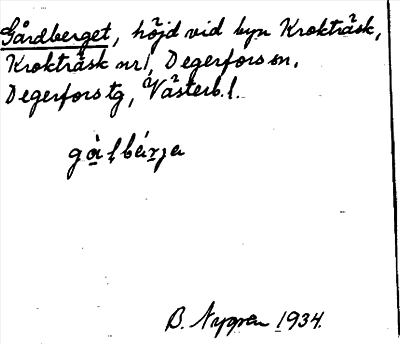 Gårdberget, höjd vid byn Krokträsk,
Krokträsk nr 1, Degerfors sn,
Degerfors tg, Västerb. l.
B. Nygren 1934.